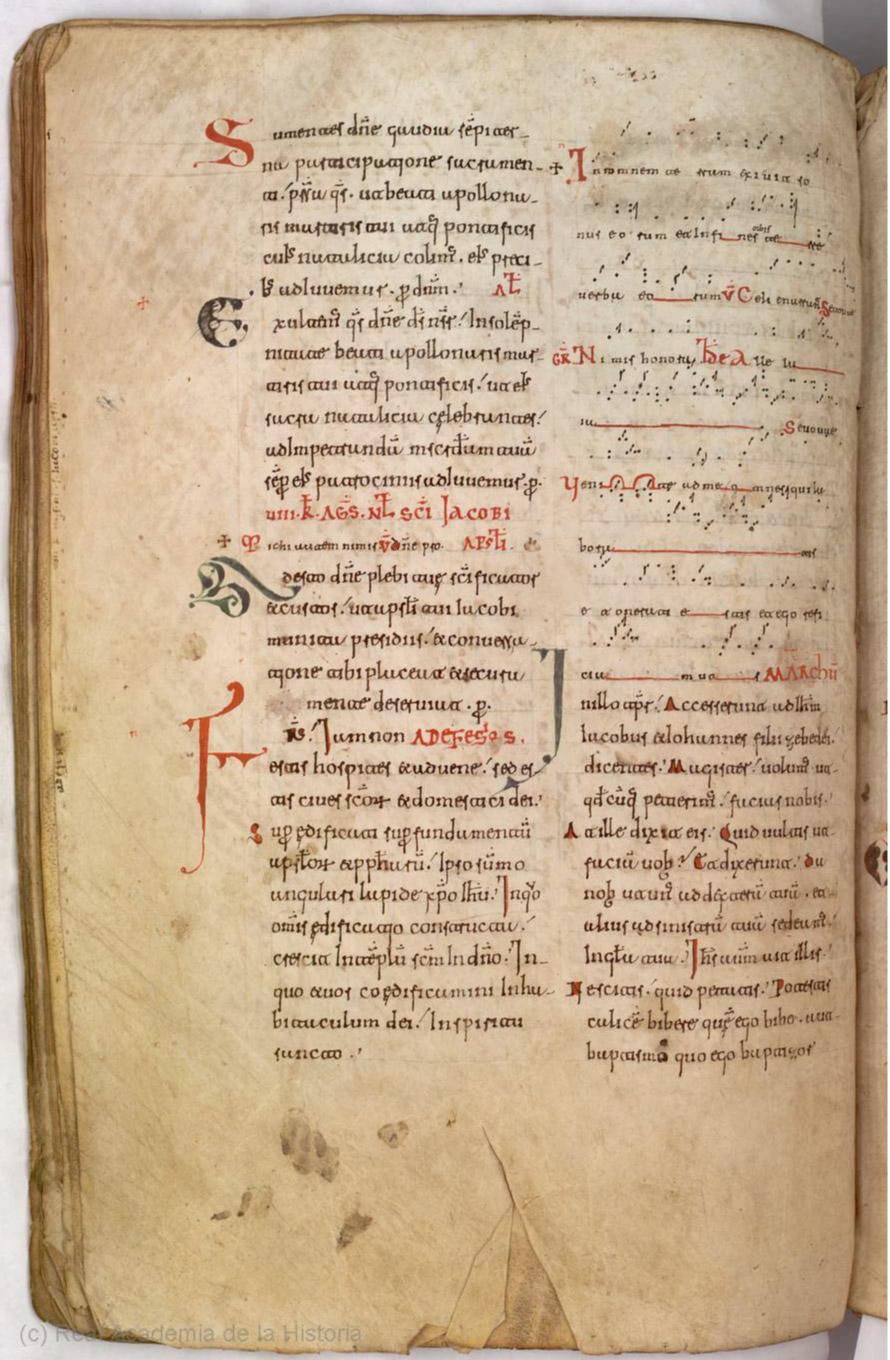 Sumentes dn̄e gaudia sēpiter-
na participatione sacramen-
ti. p̄sta q̄s. ut beati apollona-
ris martiris tui atq̄ pontificis
cuīs natalicia colim̄. eīs preci-
b; adiuvemur. p dn̄m. AL̄T
Exultam̄ q̄s dn̄e d̄s n̄sr. In solēp-
nitate beati apollonaris mar-
tiris tui atq̄ pontificis. ut eīs
sacra natalicia celebrantes.
ad Impetrandā miscd̄iam tuā
sēp eīs patrociniis adiuvemur. p.
viii. K̄. AḠS. N̄TL SC̄I Jacobi
Michi autem nimis V̄ Dn̄e pro. APSTL̄I.
Adesto dn̄e plebi tuę sc̄ificator
et custos. ut apstl̄i tui Iacobi
munita presidiis. et conversa-
tione tibi placeat et secura
mente deserviat. p.
Fr̄s. Iam non AD EFESIOS.
estis hospites et advene. sed es-
tis cives sc̄or et domestici dei.
Sup ędificati sup fundamentū
apstl̄or et pph̄tarū. Ipso sūmo
angulari lapide xp̄o ih̄u. In q̄o
om̄is ędificatio constructa.
crescit In tēplū sc̄m In dn̄o. In
quo et vos coędificamini In ha-
bitaculum dei. In spiritu
sancto.
In omnem terram exivit so
nus eorum et In fines orbis terre
verba eorum V̄ Celi enarrant Seuouae
GR̄ Nimis honorati V̄ Dn̄e Alle lu
ia Seuouae
Venite ad me omnes qui la
boratis
et onerati estis et ego refi
ciam vos MARCHŪ
In illo tp̄r. Accesserunt ad ih̄m
Iacobus et Iohannes filii zebedei.
dicentes. Magister. volum̄ ut
qd̄cūq̄ petierim̄. facias nobis.
At ille dixit eis. Quid vultis ut
faciā vob; Et dixerunt. Da
nob; ut un̄s ad dexterā tuā. et
alius ad sinistrā tuā sedeam̄.
In gl̄a tua. Ih̄s autm̄ ait illis.
Nescitis. quid petatis. Potestis
calicē bibere quē ego bibo. aut
baptismā quo ego baptizor
(c) Real Academia de la Historia